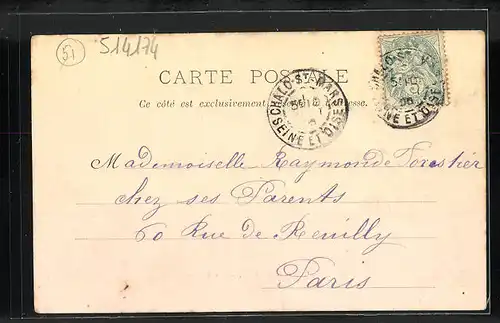 51
514174
CARTE POSTALE
Ce côté est exclusivement resse.
CHALO-ST-MARS
SEINE ET OISE
CHALO-ST-M
SEINE ET OISE
Mademoiselle Raymonde Forestier
chez ses Parents
60 Rue de Reuilly
Paris